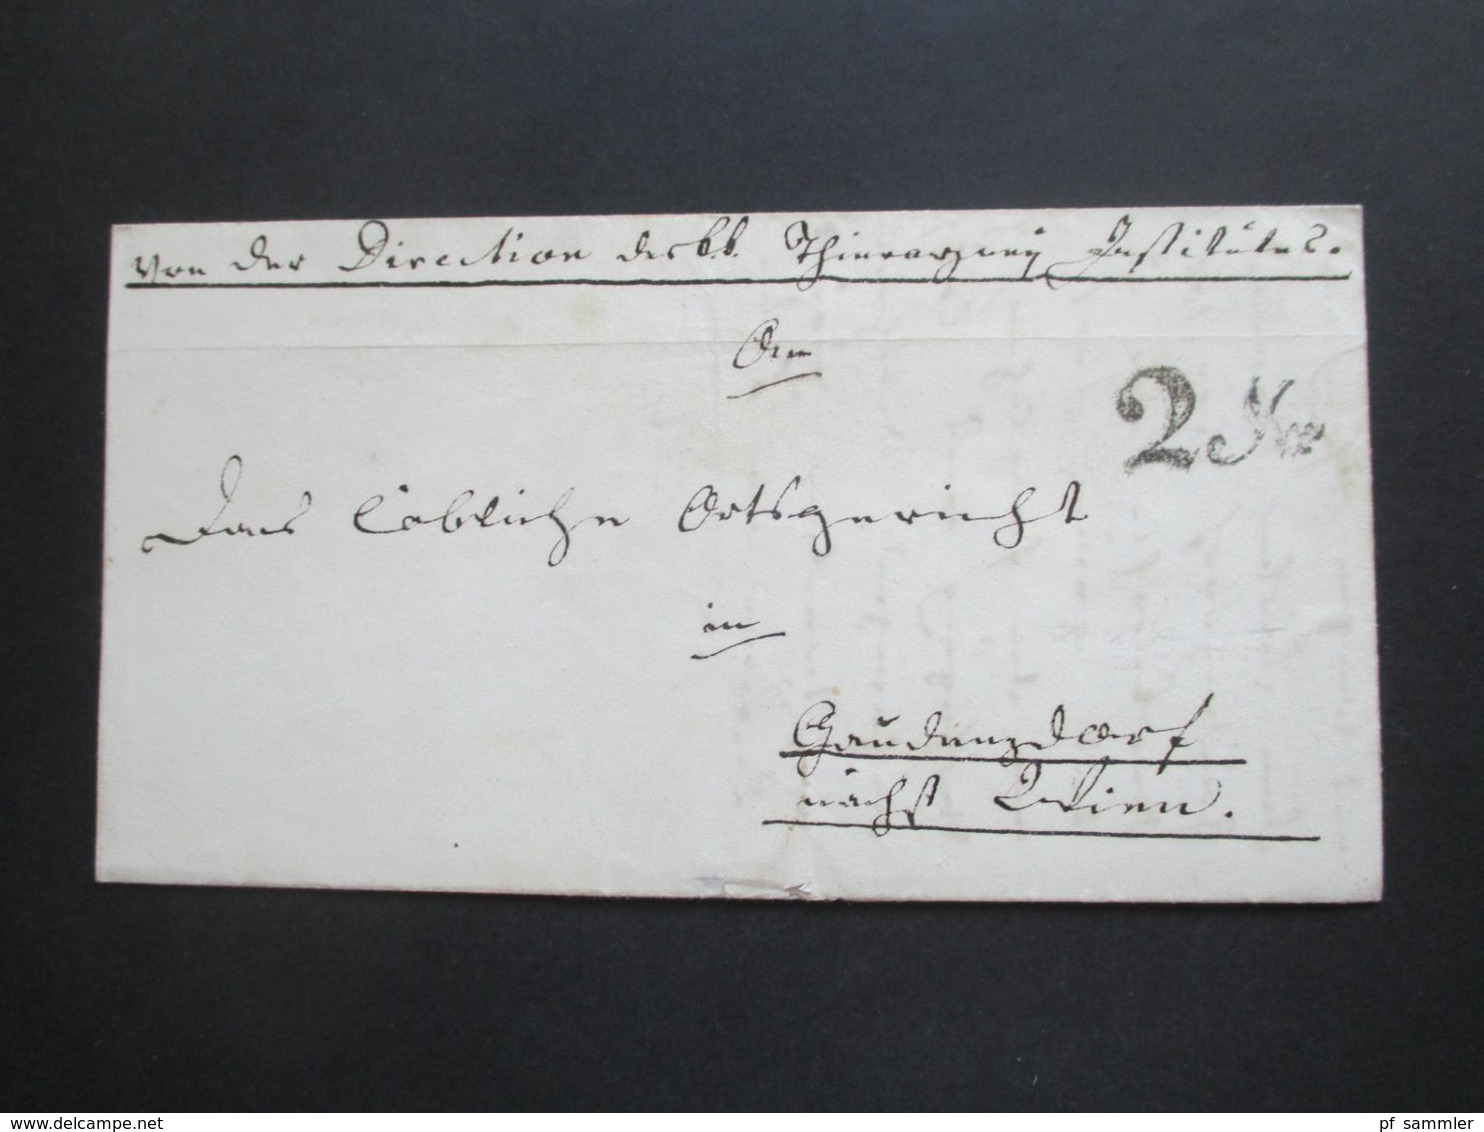 Von der Direction des k.k. Thierarzney Institutes.
An
2 Kr
Das löbliche Ortsgericht
in
Gaudenzdorf
nächst Wien.
delcampe.net
pf sammler